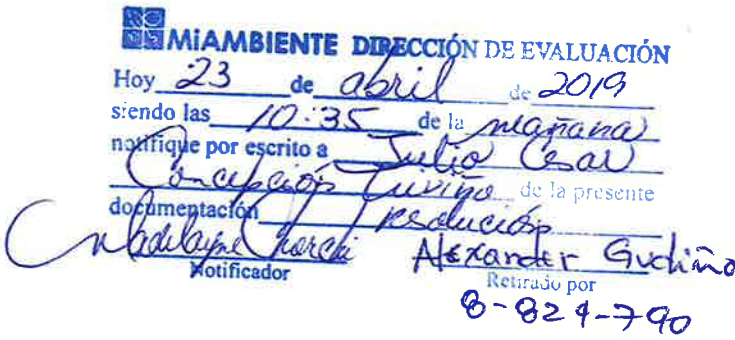 MiAMBIENTE DIRECCIÓN DE EVALUACIÓN
Hoy 23 de abril de 2019
siendo las 10:35 de la mañana
notifique por escrito a Julio Cesar
Concepción Triviño de la presente
documentación resolución
Alexander Gudiño
Notificador Retirado por
8-824-790